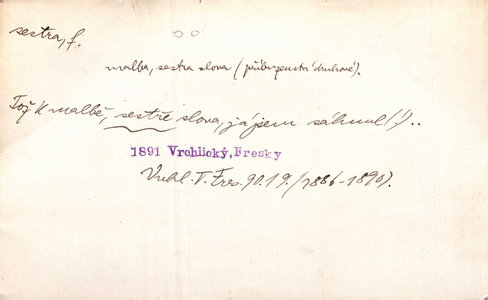 sestra, f.
malba, sestra slova (příbuzenství druhové).
Tož k malbě, sestře slova, já jsem sáhnul (!)..
1891 Vrchlický, Fresky
Vrchl. V. Fres. 90. 19. (1886-1890).